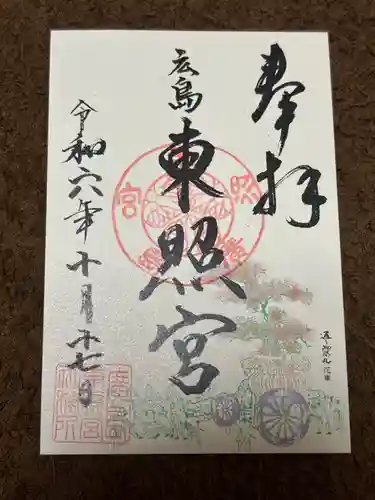 奉拝
広島
東照宮
令和六年十月十七日